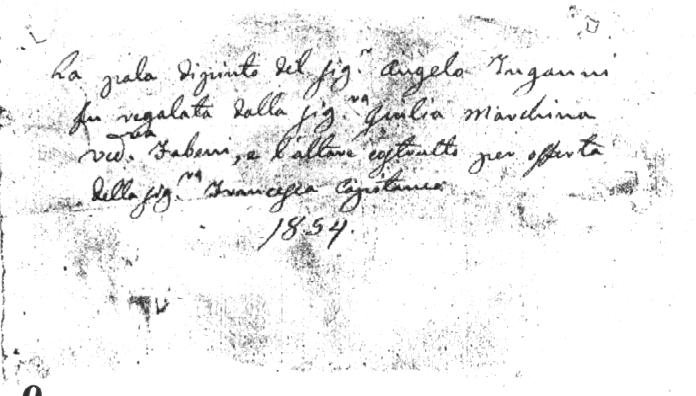 La pala dipinto del sig.r Angelo Inganni
fu regalata dalla sig.ra Giulia Marchina
ved.va Fabeni, e l'altare costrutto per offerta
della sig.ra Francesca Capitanio
1854.